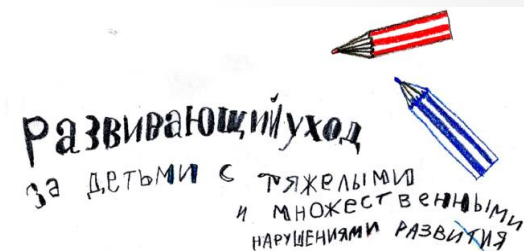 Развивающий уход
за детьми с тяжелыми
и множественными
нарушениями развития